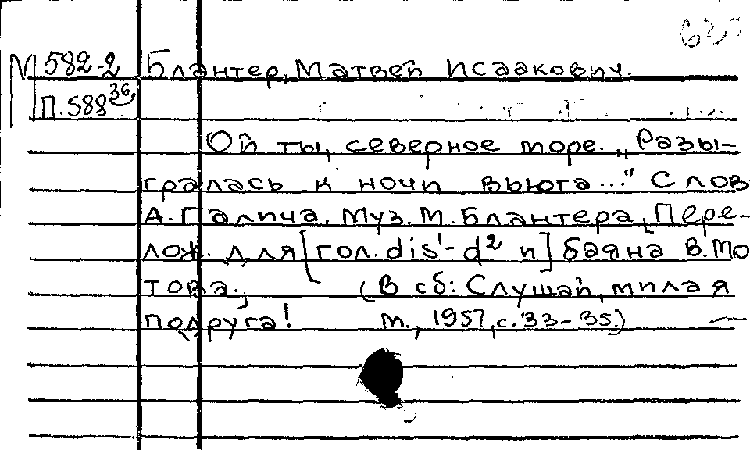 М 582-2 Блантер, Матвей Исаакович.
П.588 36
Ой ты, северное море. „Разы-
гралась к ночи вьюга..." Слов
А. Галича. Муз. М. Блантера. Пере-
лож. для [гол. dis¹-d² и] баяна В. Мо
това. (В сб: Слушай, милая
подруга! М., 1957, с. 33-35.)